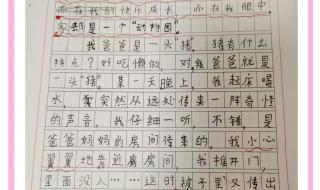 而在我们快乐成长，而在我眼中，
家却是一个“动物园”。
我爸爸是一头“猪”。猪有什么
特点？好吃懒做，对，我爸爸就是
一头“猪”。某一天晚上，我起床喝
水，突然从远处传来一阵奇怪
的声音，我仔细一听，不错，是
爸爸妈妈的房间传来的，我小心
翼翼地靠近房间，我推开门
里面没人……这时被子里又传出